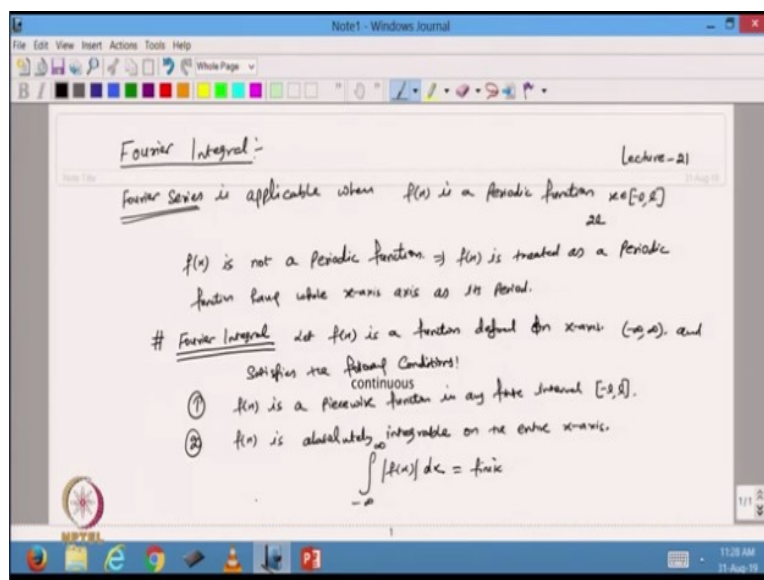 Note1 - Windows Journal
File Edit View Insert Actions Tools Help
Whole Page
B I
Fourier Integral :-
Lecture-21
Note Title
31-Aug-19
Fourier Series is applicable when f(x) is a Periodic function x∈[-l,l]
2l
f(x) is not a Periodic function. ⇒ f(x) is treated as a Periodic
function have whole x-axis axis as its Period.
# Fourier Integral Let f(x) is a function defined on x-axis (-∞,∞). and
Satisfies the following Conditions!
continuous
① f(x) is a Piecewise function in any finite interval [-l,l].
② f(x) is absolutely integrable on the entire x-axis.
∫_{-∞}^{∞} |f(x)| dx = finite
NPTEL
1
1/1
11:28 AM
31-Aug-19